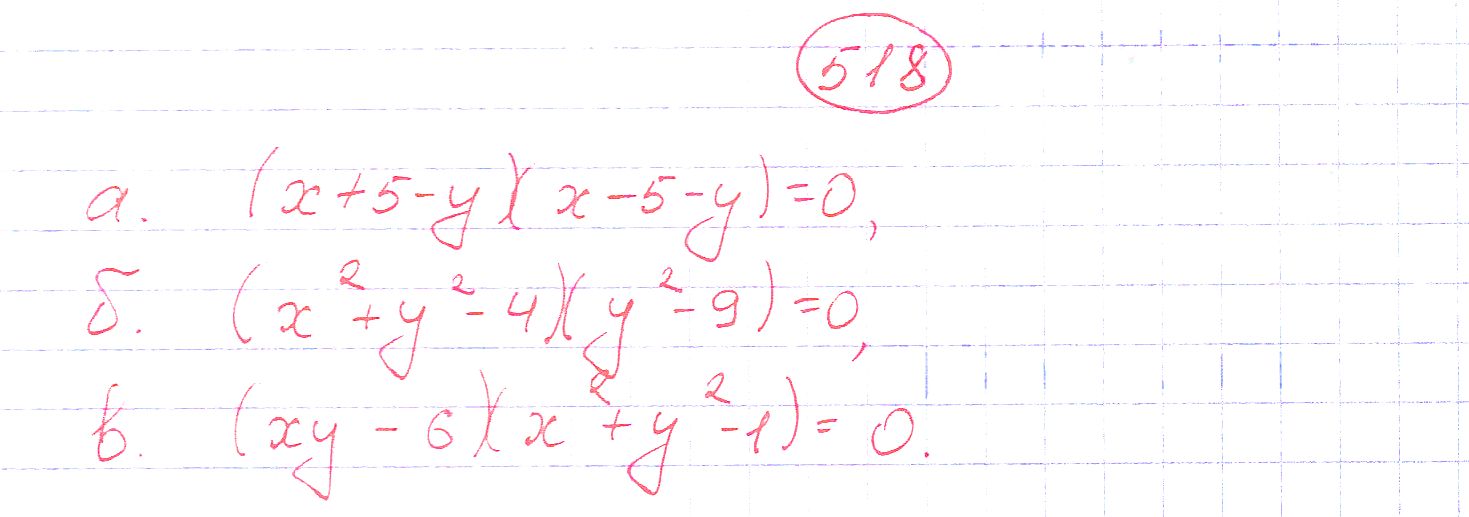 518
а. (x+5-y)(x-5-y)=0,
б. (x²+y²-4)(y²-9)=0,
в. (xy-6)(x²+y²-1)=0.